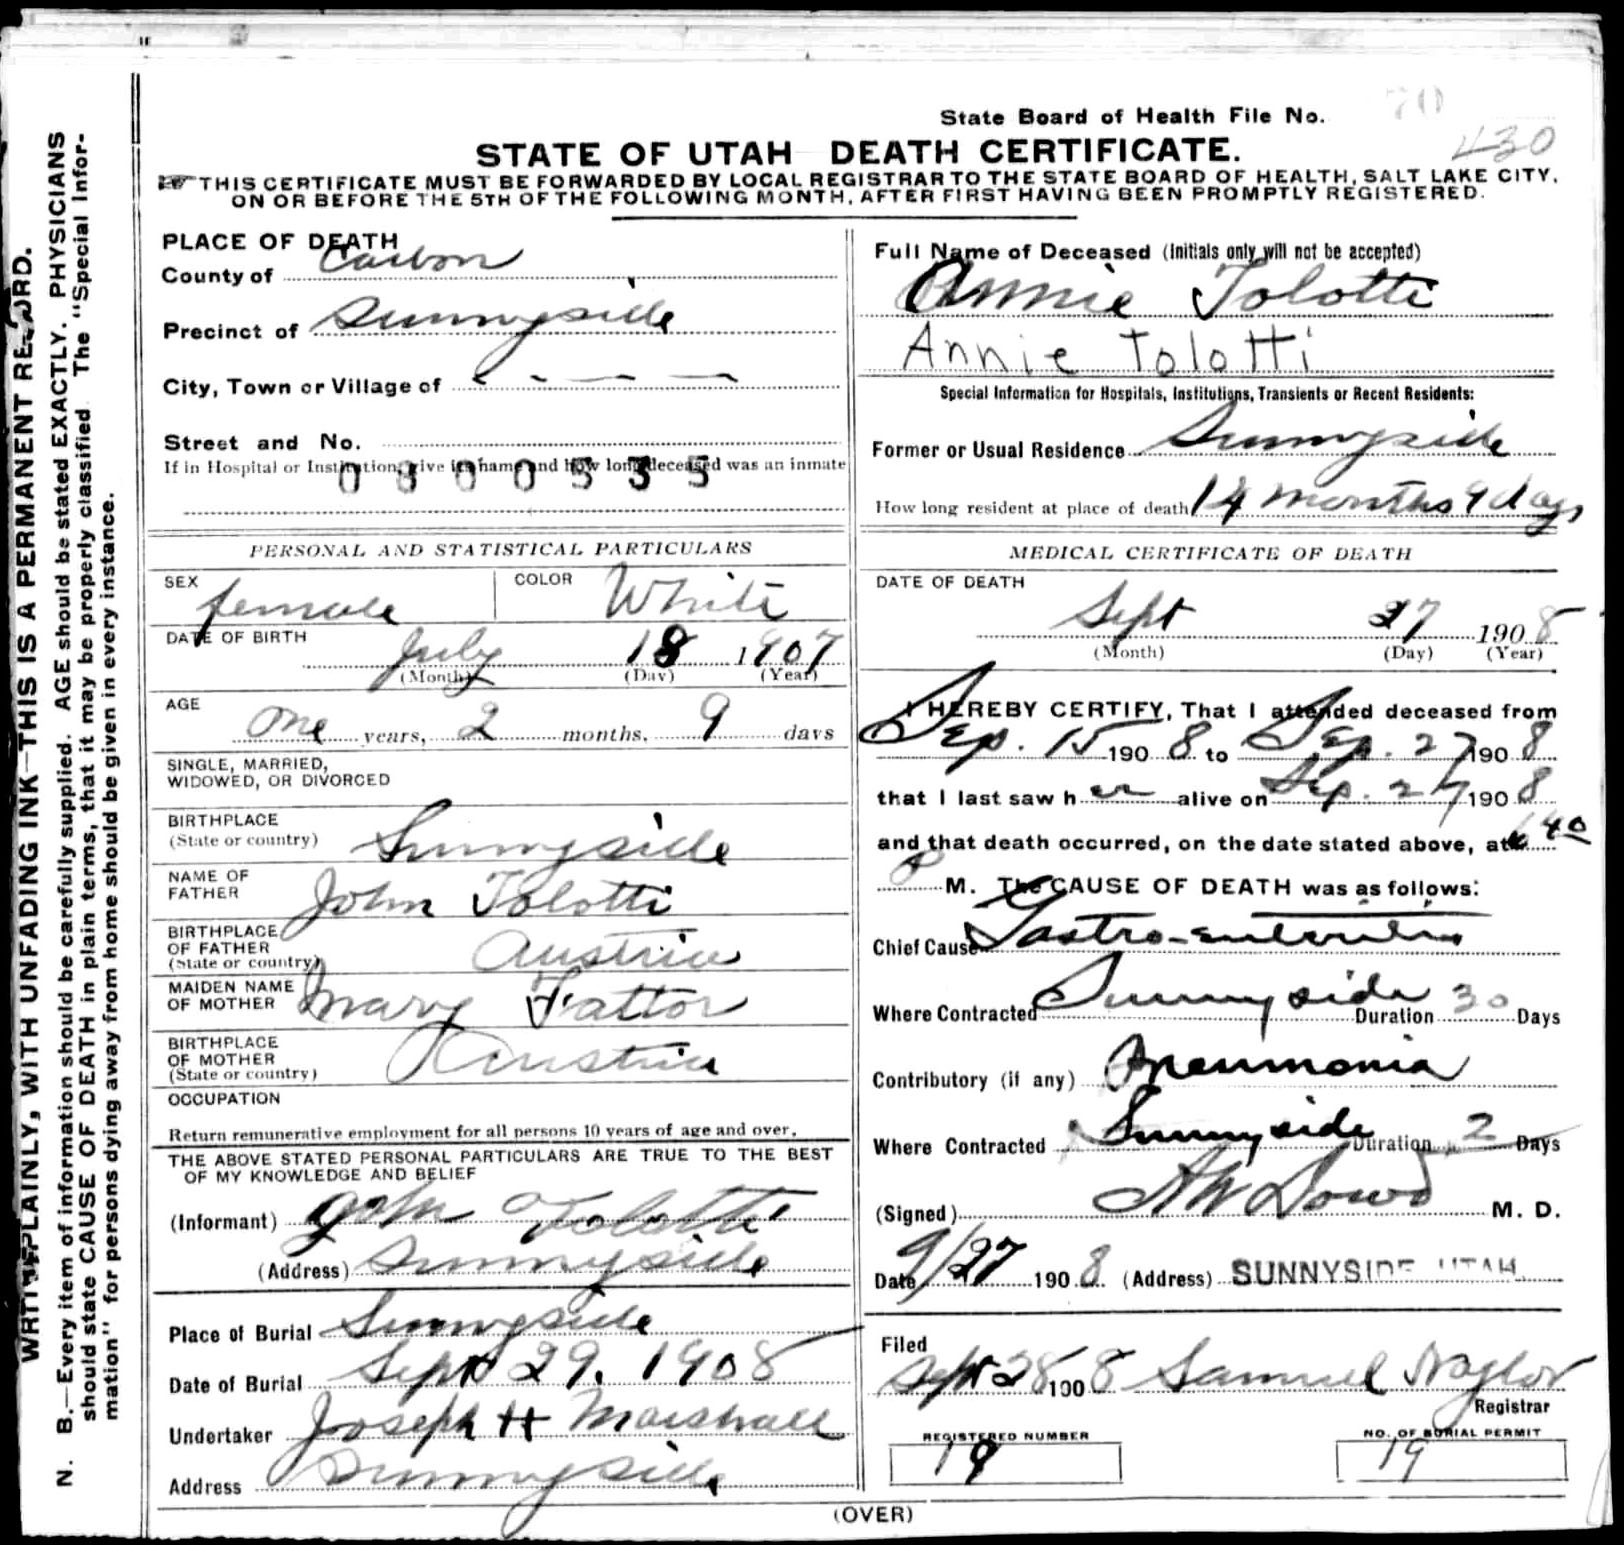 State Board of Health File No. 70
430
STATE OF UTAH DEATH CERTIFICATE.
THIS CERTIFICATE MUST BE FORWARDED BY LOCAL REGISTRAR TO THE STATE BOARD OF HEALTH, SALT LAKE CITY,
ON OR BEFORE THE 5TH OF THE FOLLOWING MONTH, AFTER FIRST HAVING BEEN PROMPTLY REGISTERED.
WRITE PLAINLY, WITH UNFADING INK—THIS IS A PERMANENT RECORD.
N. B.—Every item of information should be carefully supplied. AGE should be stated EXACTLY. PHYSICIANS
should state CAUSE OF DEATH in plain terms, that it may be properly classified. The "Special Infor-
mation" for persons dying away from home should be given in every instance.
PLACE OF DEATH
County of Carbon
Precinct of Sunnyside
City, Town or Village of - - - -
Street and No.
If in Hospital or Institution, give its name and how long deceased was an inmate
0800535
PERSONAL AND STATISTICAL PARTICULARS
SEX female COLOR White
DATE OF BIRTH July 18 1907
(Month) (Day) (Year)
AGE
One years, 2 months, 9 days
SINGLE, MARRIED,
WIDOWED, OR DIVORCED
BIRTHPLACE
(State or country) Sunnyside
NAME OF
FATHER John Tolotti
BIRTHPLACE
OF FATHER
(State or country) Austria
MAIDEN NAME
OF MOTHER Mary Fattor
BIRTHPLACE
OF MOTHER
(State or country) Austria
OCCUPATION
Return remunerative employment for all persons 10 years of age and over.
THE ABOVE STATED PERSONAL PARTICULARS ARE TRUE TO THE BEST
OF MY KNOWLEDGE AND BELIEF
(Informant) John Tolotti
(Address) Sunnyside
Place of Burial Sunnyside
Date of Burial Sept 29. 1908
Undertaker Joseph H Marshall
Address Sunnyside
Full Name of Deceased (Initials only will not be accepted)
Annie Tolotti
Annie Tolotti
Special Information for Hospitals, Institutions, Transients or Recent Residents:
Former or Usual Residence Sunnyside
How long resident at place of death 14 months 9 days
MEDICAL CERTIFICATE OF DEATH
DATE OF DEATH
Sept 27 1908
(Month) (Day) (Year)
I HEREBY CERTIFY, That I attended deceased from
Sep. 15 1908 to Sep. 27 1908
that I last saw her alive on Sep. 27 1908
and that death occurred, on the date stated above, at 6 40
P M. The CAUSE OF DEATH was as follows:
Chief Cause Gastro-enteritis
Where Contracted Sunnyside Duration 30 Days
Contributory (if any) Pneumonia
Where Contracted Sunnyside Duration 2 Days
(Signed) A W Dowd M. D.
Date 9/27 1908 (Address) SUNNYSIDE UTAH
Filed
Sept 28 1908 Samuel Naylor
Registrar
REGISTERED NUMBER
19
NO. OF BURIAL PERMIT
19
(OVER)